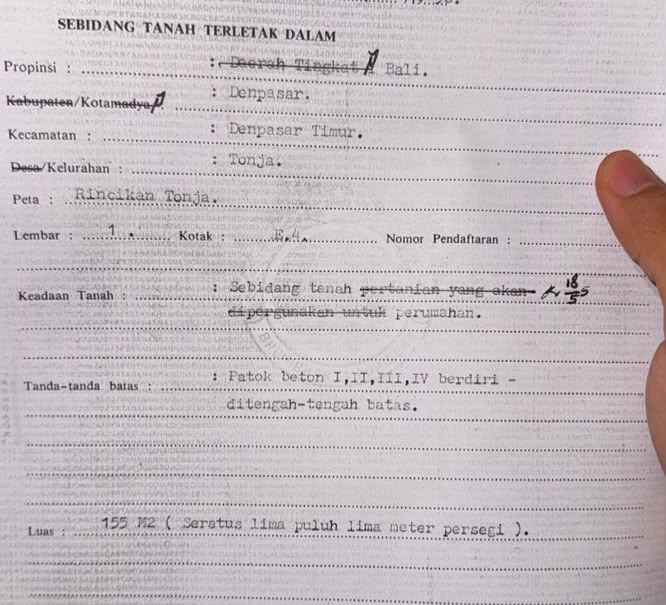 SEBIDANG TANAH TERLETAK DALAM
Propinsi : : Daerah Tingkat I Bali.
Kabupaten/Kotamadya : Denpasar.
Kecamatan : : Denpasar Timur.
Desa/Kelurahan : : Tonja.
Peta : Rincikan Tonja.
Lembar : 1. Kotak : E.4. Nomor Pendaftaran :
Keadaan Tanah : : Sebidang tanah pertanian yang akan
dipergunakan untuk perumahan.
Tanda-tanda batas : : Patok beton I,II,III,IV berdiri -
ditengah-tengah batas.
Luas : 155 M2 ( Seratus lima puluh lima meter persegi ).